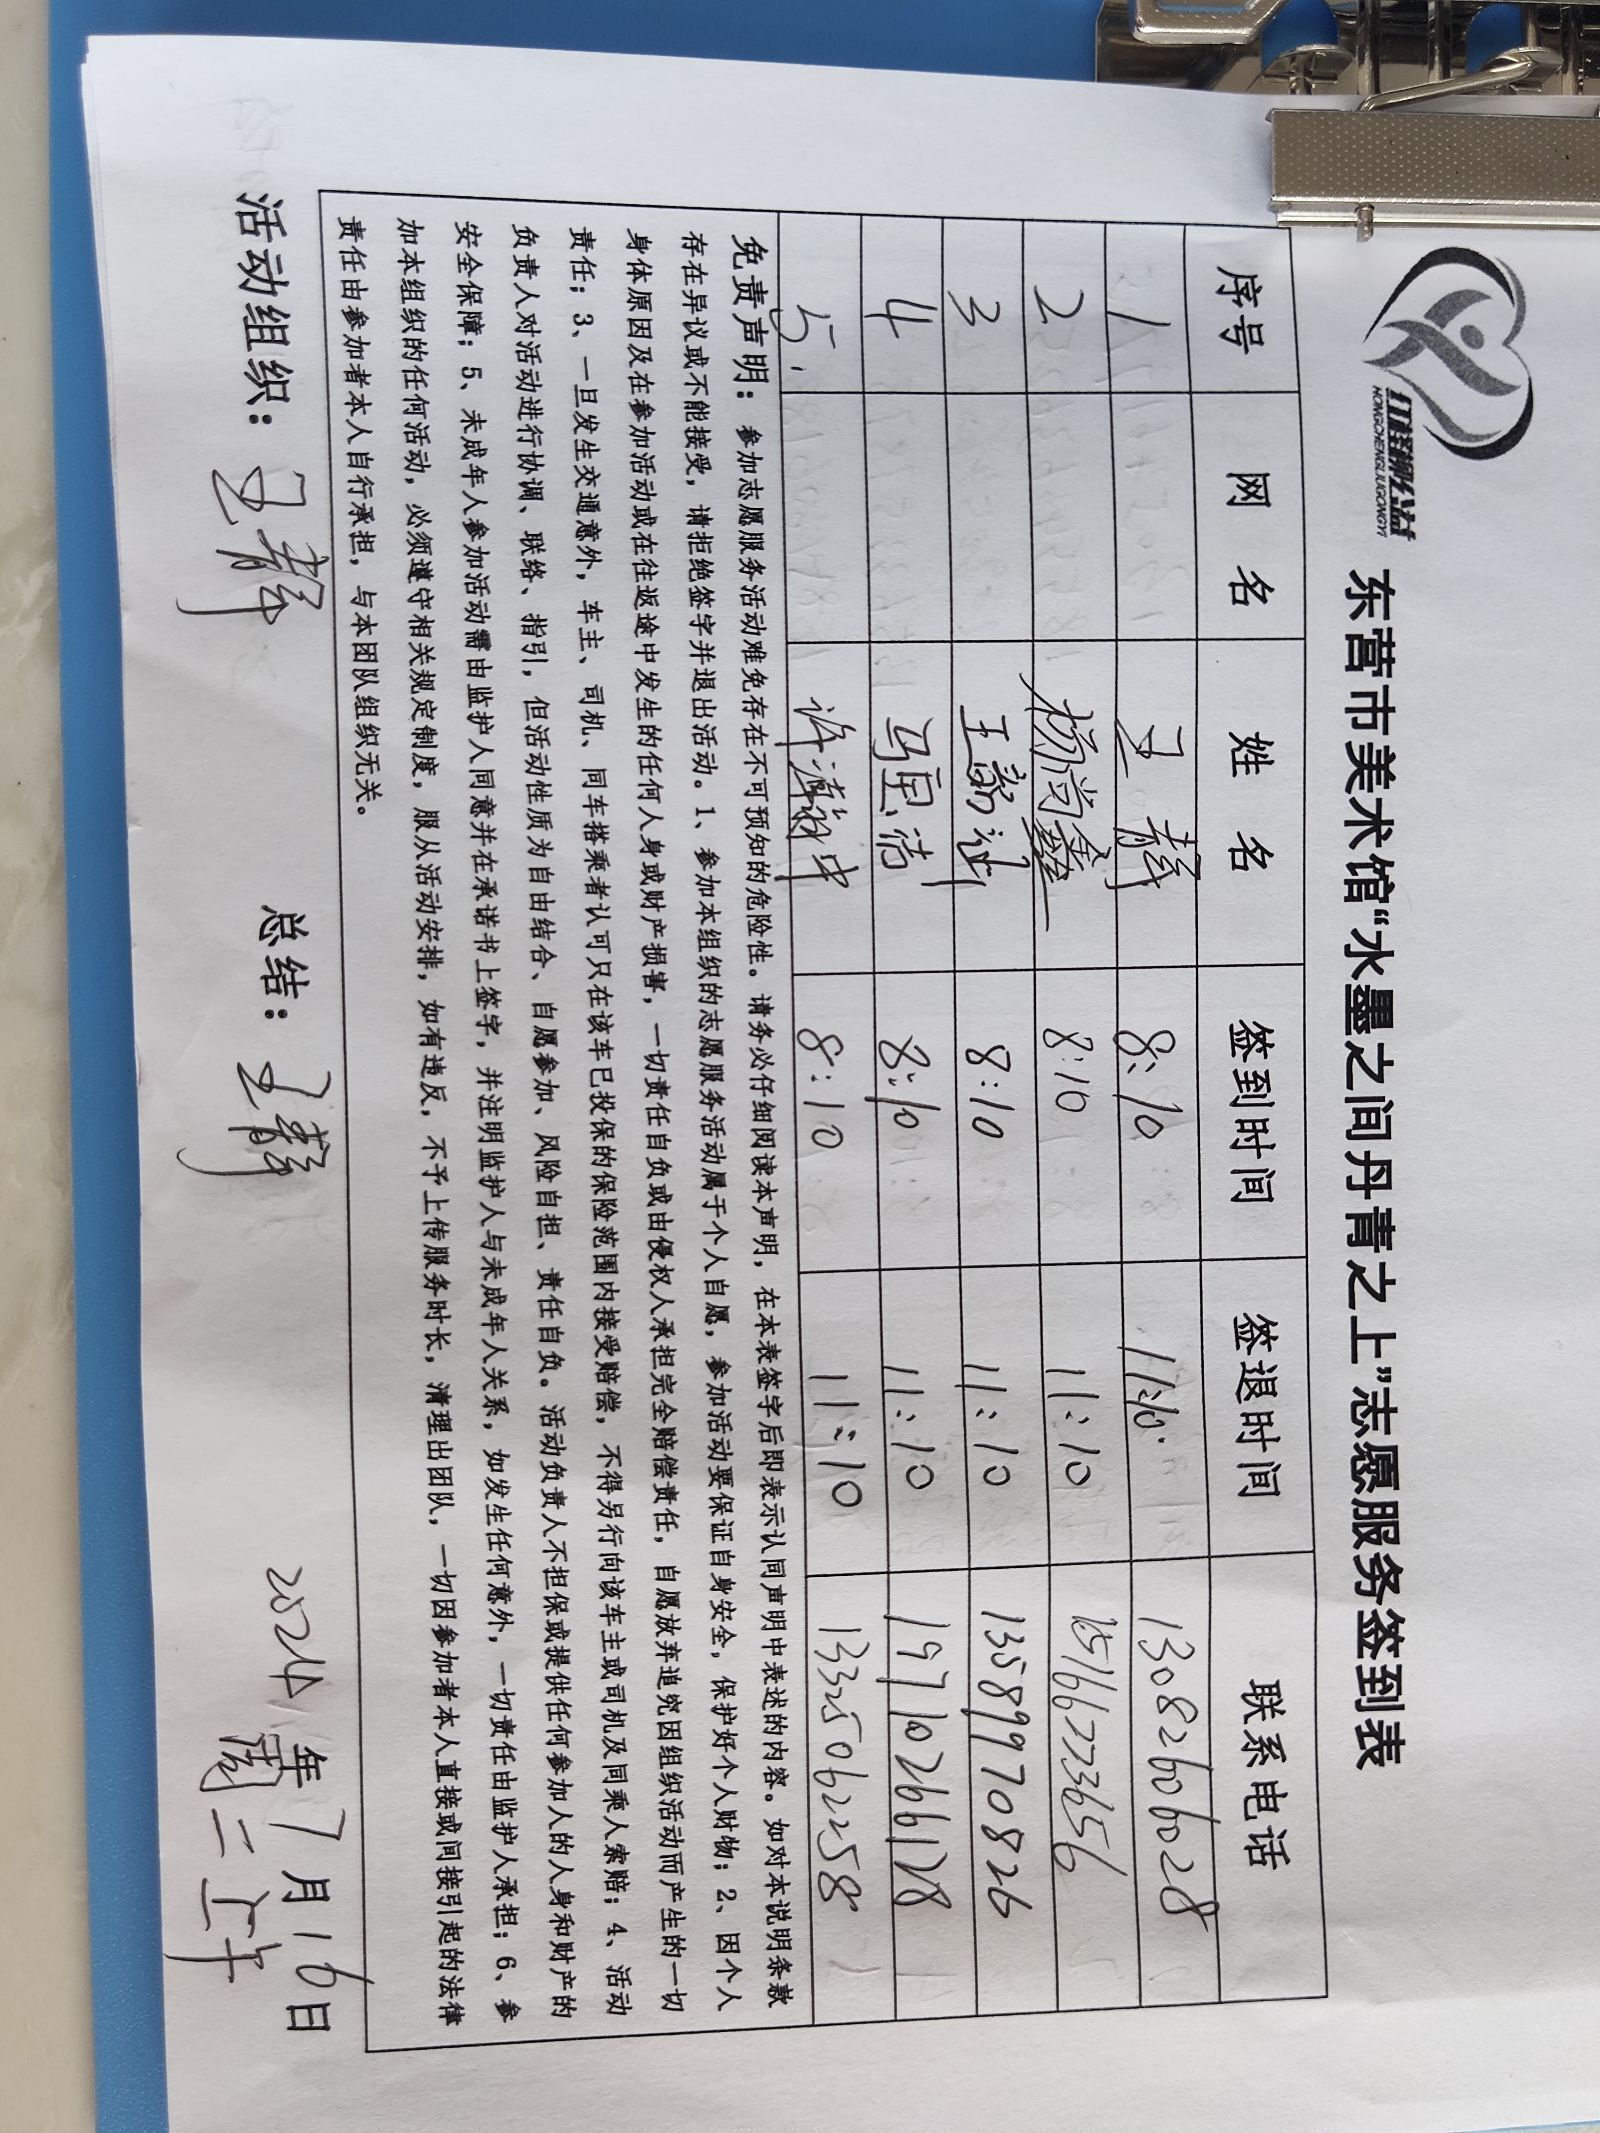 HONGCHENGLIUGONGYI
东营市美术馆“水墨之间丹青之上”志愿服务签到表
序号 网 名 姓 名 签到时间 签退时间 联系电话
1 8:10 11:10 13082606028
2 8:10 11:10 15166773656
3 8:10 11:10 13589970826
4 8:10 11:10 19710266128
5. 8:10 11:10 13325062258
免责声明：参加志愿服务活动难免存在不可预知的危险性。请务必仔细阅读本声明，在本表签字后即表示认同声明中表述的内容。如对本说明条款
存在异议或不能接受，请拒绝签字并退出活动。1、参加本组织的志愿服务活动属于个人自愿，参加活动要保证自身安全，保护好个人财物；2、因个人
身体原因及在参加活动或在往返途中发生的任何人身或财产损害，一切责任自负或由侵权人承担完全赔偿责任，自愿放弃追究因组织活动而产生的一切
责任；3、一旦发生交通意外，车主、司机、同车搭乘者认可只在该车已投保的保险范围内接受赔偿，不得另行向该车主或司机及同乘人索赔；4、活动
负责人对活动进行协调、联络、指引，但活动性质为自由结合、自愿参加、风险自担、责任自负。活动负责人不担保或提供任何参加人的人身和财产的
安全保障；5、未成年人参加活动需由监护人同意并在承诺书上签字，并注明监护人与未成年人关系，如发生任何意外，一切责任由监护人承担；6、参
加本组织的任何活动，必须遵守相关规定制度，服从活动安排，如有违反，不予上传服务时长，清理出团队，一切因参加者本人直接或间接引起的法律
责任由参加者本人自行承担，与本团队组织无关。
活动组织： 总结： 2024年7月16日
周二上午